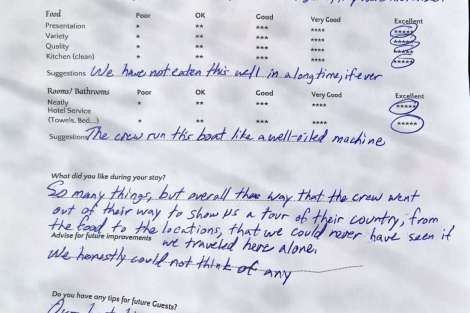 Food Poor OK Good Very Good Excellent
Presentation * ** *** **** *****
Variety * ** *** **** *****
Quality * ** *** **** *****
Kitchen (clean) * ** *** **** *****
Suggestions We have not eaten this well in a long time, if ever
Rooms/ Bathrooms Poor OK Good Very Good Excellent
Neatly * ** *** **** *****
Hotel Service
(Towels, Bed...) * ** *** **** *****
Suggestions The crew run this boat like a well-oiled machine
What did you like during your stay?
So many things, but overall the way that the crew went
out of their way to show us a tour of their country, from
the food to the locations, that we could never have seen if
Advise for future improvements we traveled here alone.
We honestly could not think of any
Do you have any tips for future Guests?